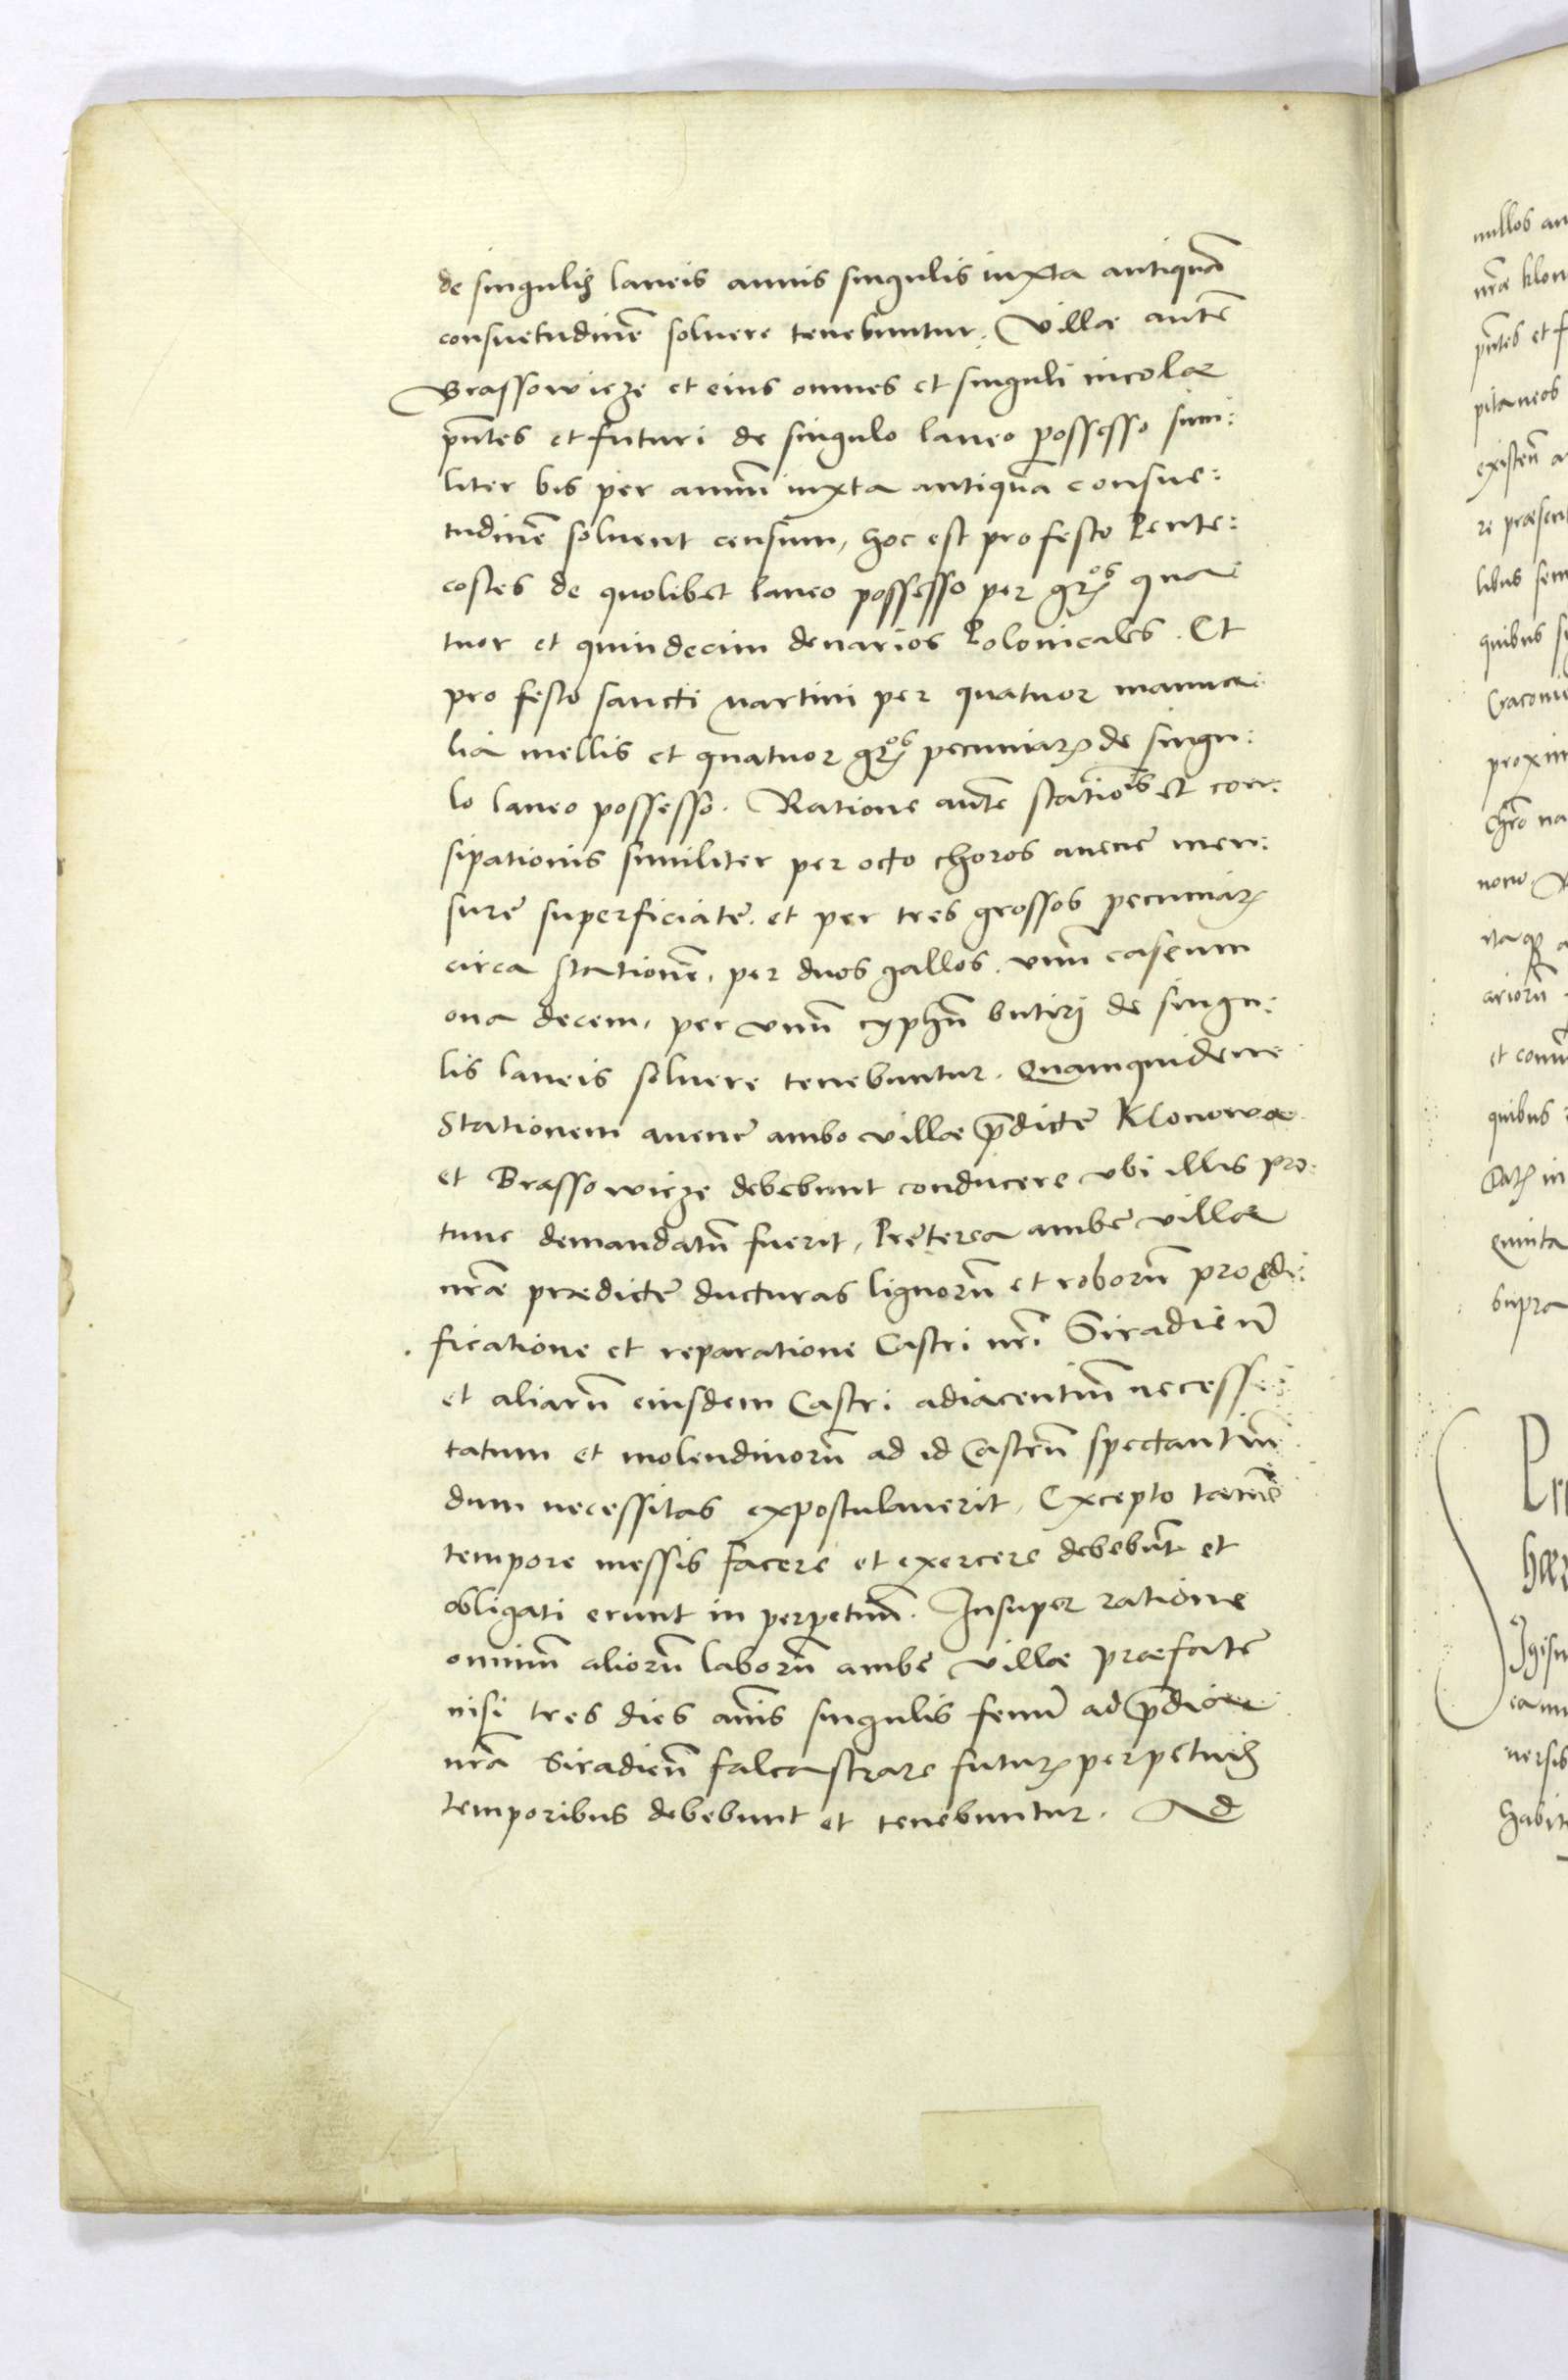 de singulis laneis annis singulis iuxta antiquã
consuetudinẽ soluere tenebuntur. Villæ autẽ
Brassowicze et eius omnes et singuli incolæ
pñtes et futuri de singulo laneo possesso simi:
liter bis per annũ iuxta antiquã consue:
tudinẽ soluent censum, hoc est pro festo Pente:
costes de quolibet laneo possesso per gr̃os qua
tuor et quindecim denarios Polonicales. Et
pro festo sancti Martini per quatuor manua:
lia mellis et quatuor gr̃os pecuniarꝫ de singu:
lo laneo possesso. Ratione autẽ statiõis et con:
sipationis similiter per octo choros auenę men:
surę superficiatę. et per tres grossos pecuniarꝫ
circa stationẽ, per duos gallos. vnũ caseum
oua decem, per vnũ cyphũ butiri de singu:
lis laneis soluere tenebuntur. Quamquidem
Stationem auenę ambo villæ p̃dictę Klonowa
et Brassowicze debebunt conducere vbi illis pro:
tunc demandatũ fuerit, Pręterea ambę villæ
nr̃æ prædictę ducturas lignorũ et roborũ pro ędi:
ficatione et reparatione Castri nr̃i Siradieñ
et aliarũ eiusdem Castri adiacentiũ necessi:
tatum et molendinorũ ad id Castrũ spectantiũ
dum necessitas expostulauerit, Excepto tamẽ
tempore messis facere et exercere debebũt et
obligati erunt in perpetuũ. Insuper ratione
omniũ aliorũ laborũ ambę villæ præfatę
nisi tres dies annis singulis fenũ ad p̃dia
nr̃a Siradieñ falcastrare futurꝫ perpetuis
temporibus debebunt et tenebuntur. Ad
nullos
pñtes et
pitaneos
existeñ
libus
quibus
et
quibus
Quinta
supra